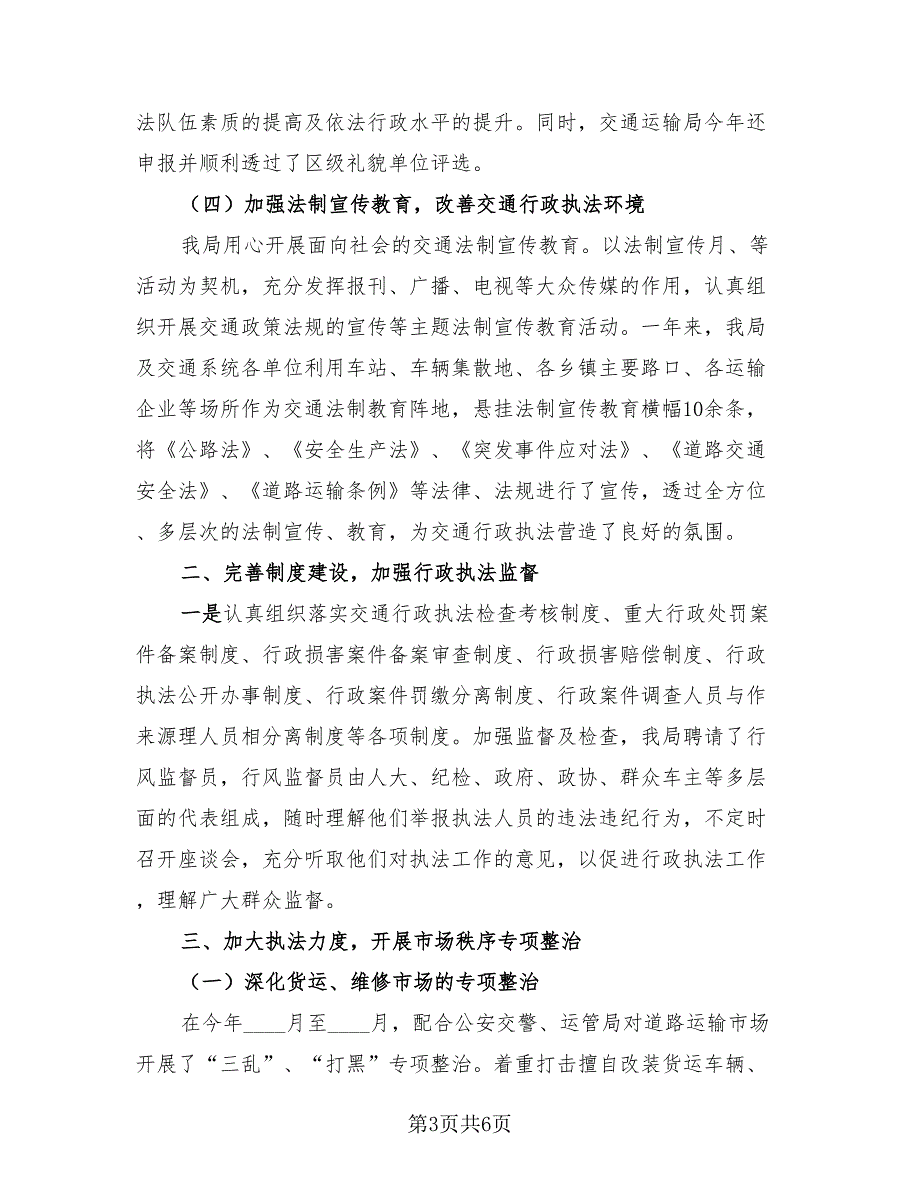 法队伍素质的提高及依法行政水平的提升。同时，交通运输局今年还
申报并顺利透过了区级礼貌单位评选。
（四）加强法制宣传教育，改善交通行政执法环境
我局用心开展面向社会的交通法制宣传教育。以法制宣传月、等
活动为契机，充分发挥报刊、广播、电视等大众传媒的作用，认真组
织开展交通政策法规的宣传等主题法制宣传教育活动。一年来，我局
及交通系统各单位利用车站、车辆集散地、各乡镇主要路口、各运输
企业等场所作为交通法制教育阵地，悬挂法制宣传教育横幅10余条，
将《公路法》、《安全生产法》、《突发事件应对法》、《道路交通
安全法》、《道路运输条例》等法律、法规进行了宣传，透过全方位
、多层次的法制宣传、教育，为交通行政执法营造了良好的氛围。
二、完善制度建设，加强行政执法监督
一是认真组织落实交通行政执法检查考核制度、重大行政处罚案
件备案制度、行政损害案件备案审查制度、行政损害赔偿制度、行政
执法公开办事制度、行政案件罚缴分离制度、行政案件调查人员与作
来源理人员相分离制度等各项制度。加强监督及检查，我局聘请了行
风监督员，行风监督员由人大、纪检、政府、政协、群众车主等多层
面的代表组成，随时理解他们举报执法人员的违法违纪行为，不定时
召开座谈会，充分听取他们对执法工作的意见，以促进行政执法工作
，理解广大群众监督。
三、加大执法力度，开展市场秩序专项整治
（一）深化货运、维修市场的专项整治
在今年____月至____月，配合公安交警、运管局对道路运输市场
开展了“三乱”、“打黑”专项整治。着重打击擅自改装货运车辆、
第3页共6页